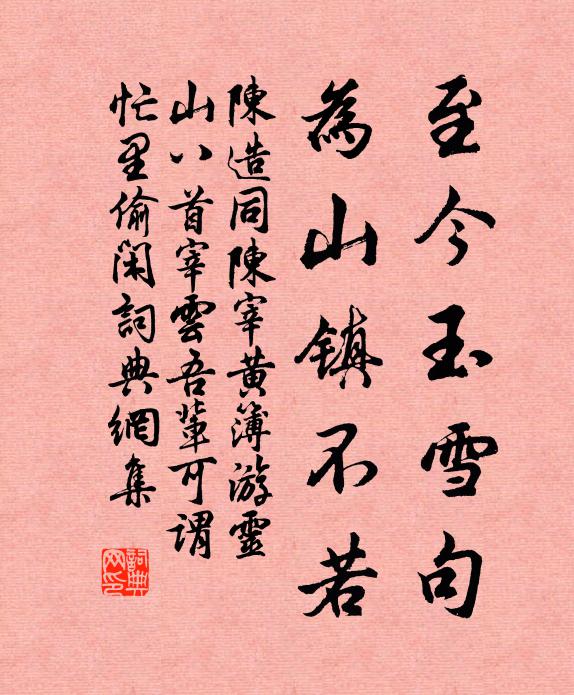 至今玉雪句
為山鎮不若
陳造同陳宰黃簿游靈
山八首宰雲吾輩可謂
忙里偷閑詞典網集
詞典网印